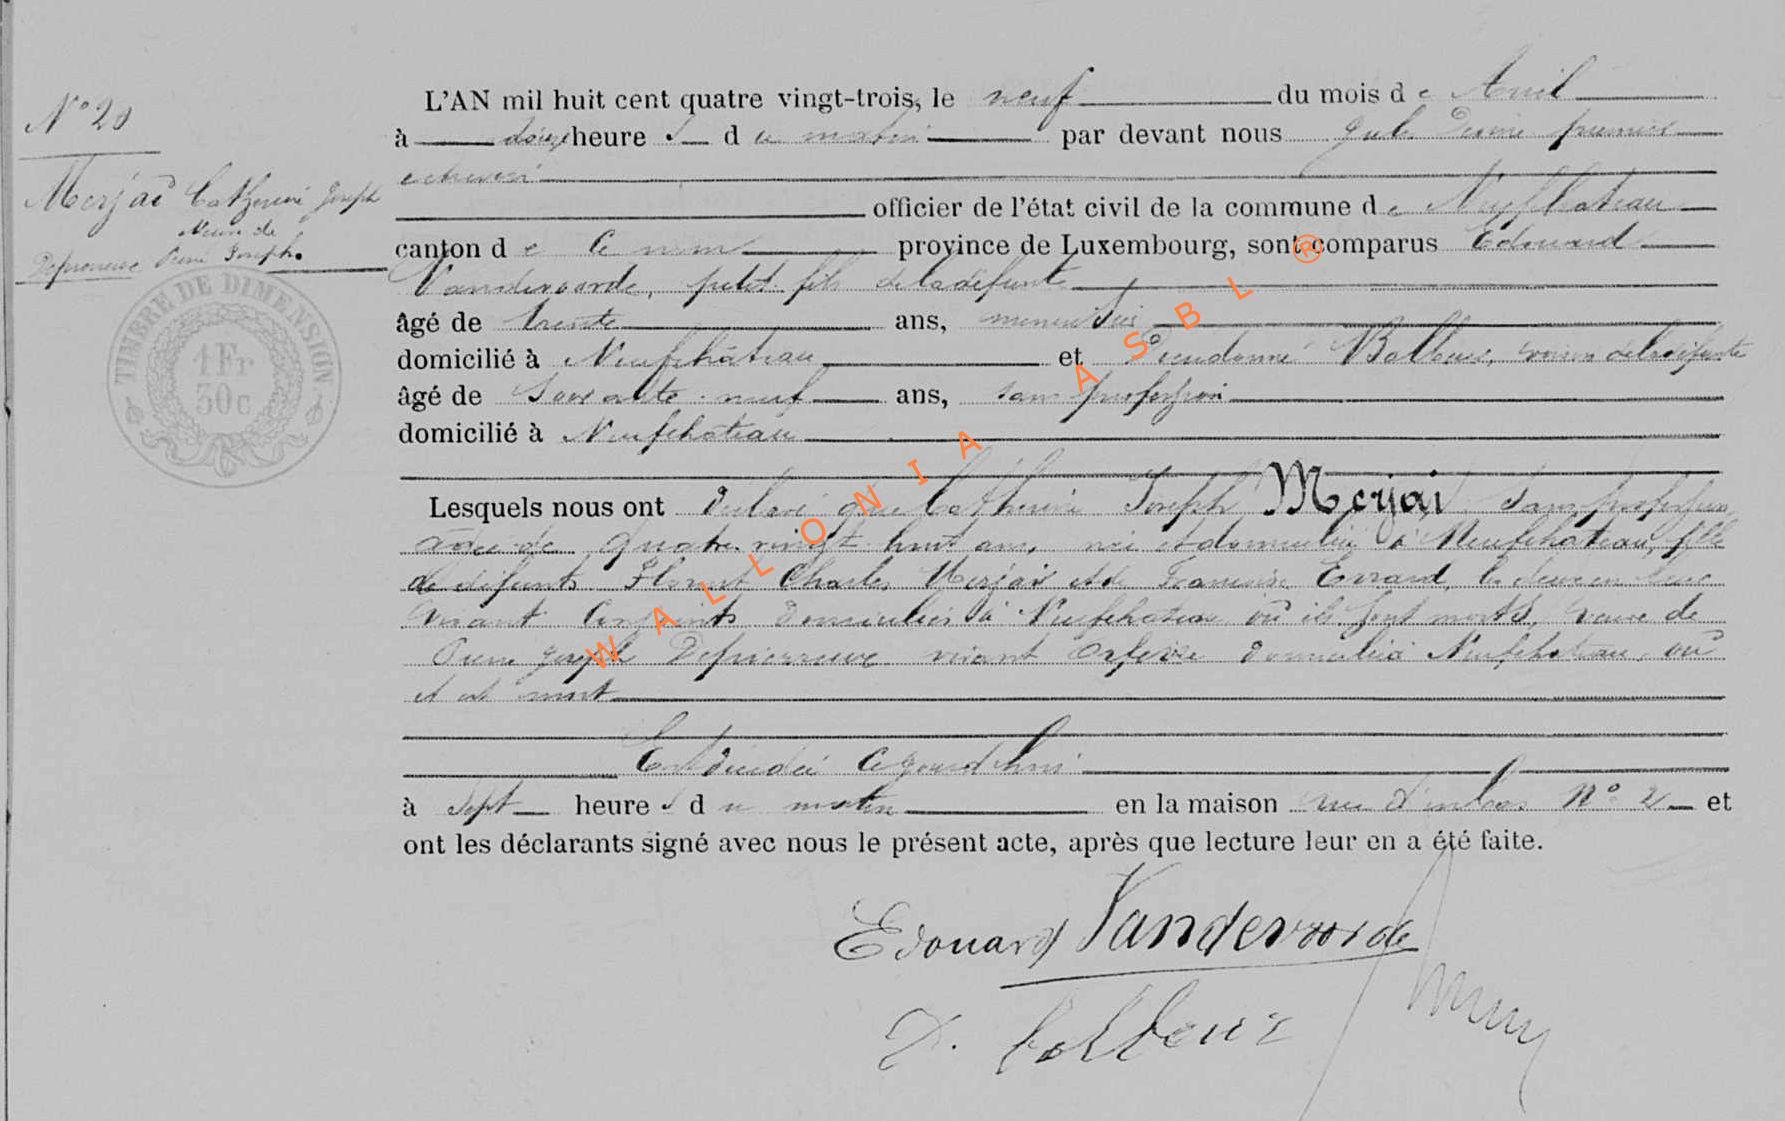 N° 20
Merjai Catherine Joseph
Veuve de
Depierreux Pierre Joseph.
TIMBRE DE DIMENSION
1 Fr
30 c
L'AN mil huit cent quatre vingt-trois, le neuf du mois de Avril
à heures du matin par devant nous Jules premier
echevin
officier de l'état civil de la commune de Neufchateau
canton de province de Luxembourg, sont comparus Edouard
Vandevoorde, petit fils de la défunte
âgé de trente ans, menuisier
domicilié à Neufchâteau et Dieudonné voisin de la défunte
âgé de Soixante-neuf ans, sans profession
domicilié à Neufchâteau
Lesquels nous ont déclaré que Catherine Joseph Merjai Sans profession
agée de quatre vingt huit ans, née et domiciliée à Neufchateau, fille
de défunts Florent Charles Merjai et de Françoise Errard, les deux en leur
vivant Conjoints domiciliés à Neufchateau où ils sont morts, veuve de
Pierre Joseph Depierreux vivant orfèvre domicilié à Neufchateau, où
il est mort
Est décédée Aujourd'hui
à Sept heures du matin en la maison rue N° 2 et
ont les déclarants signé avec nous le présent acte, après que lecture leur en a été faite.
Edouard Vandevoorde
D.
WALLONIA ASBL ®